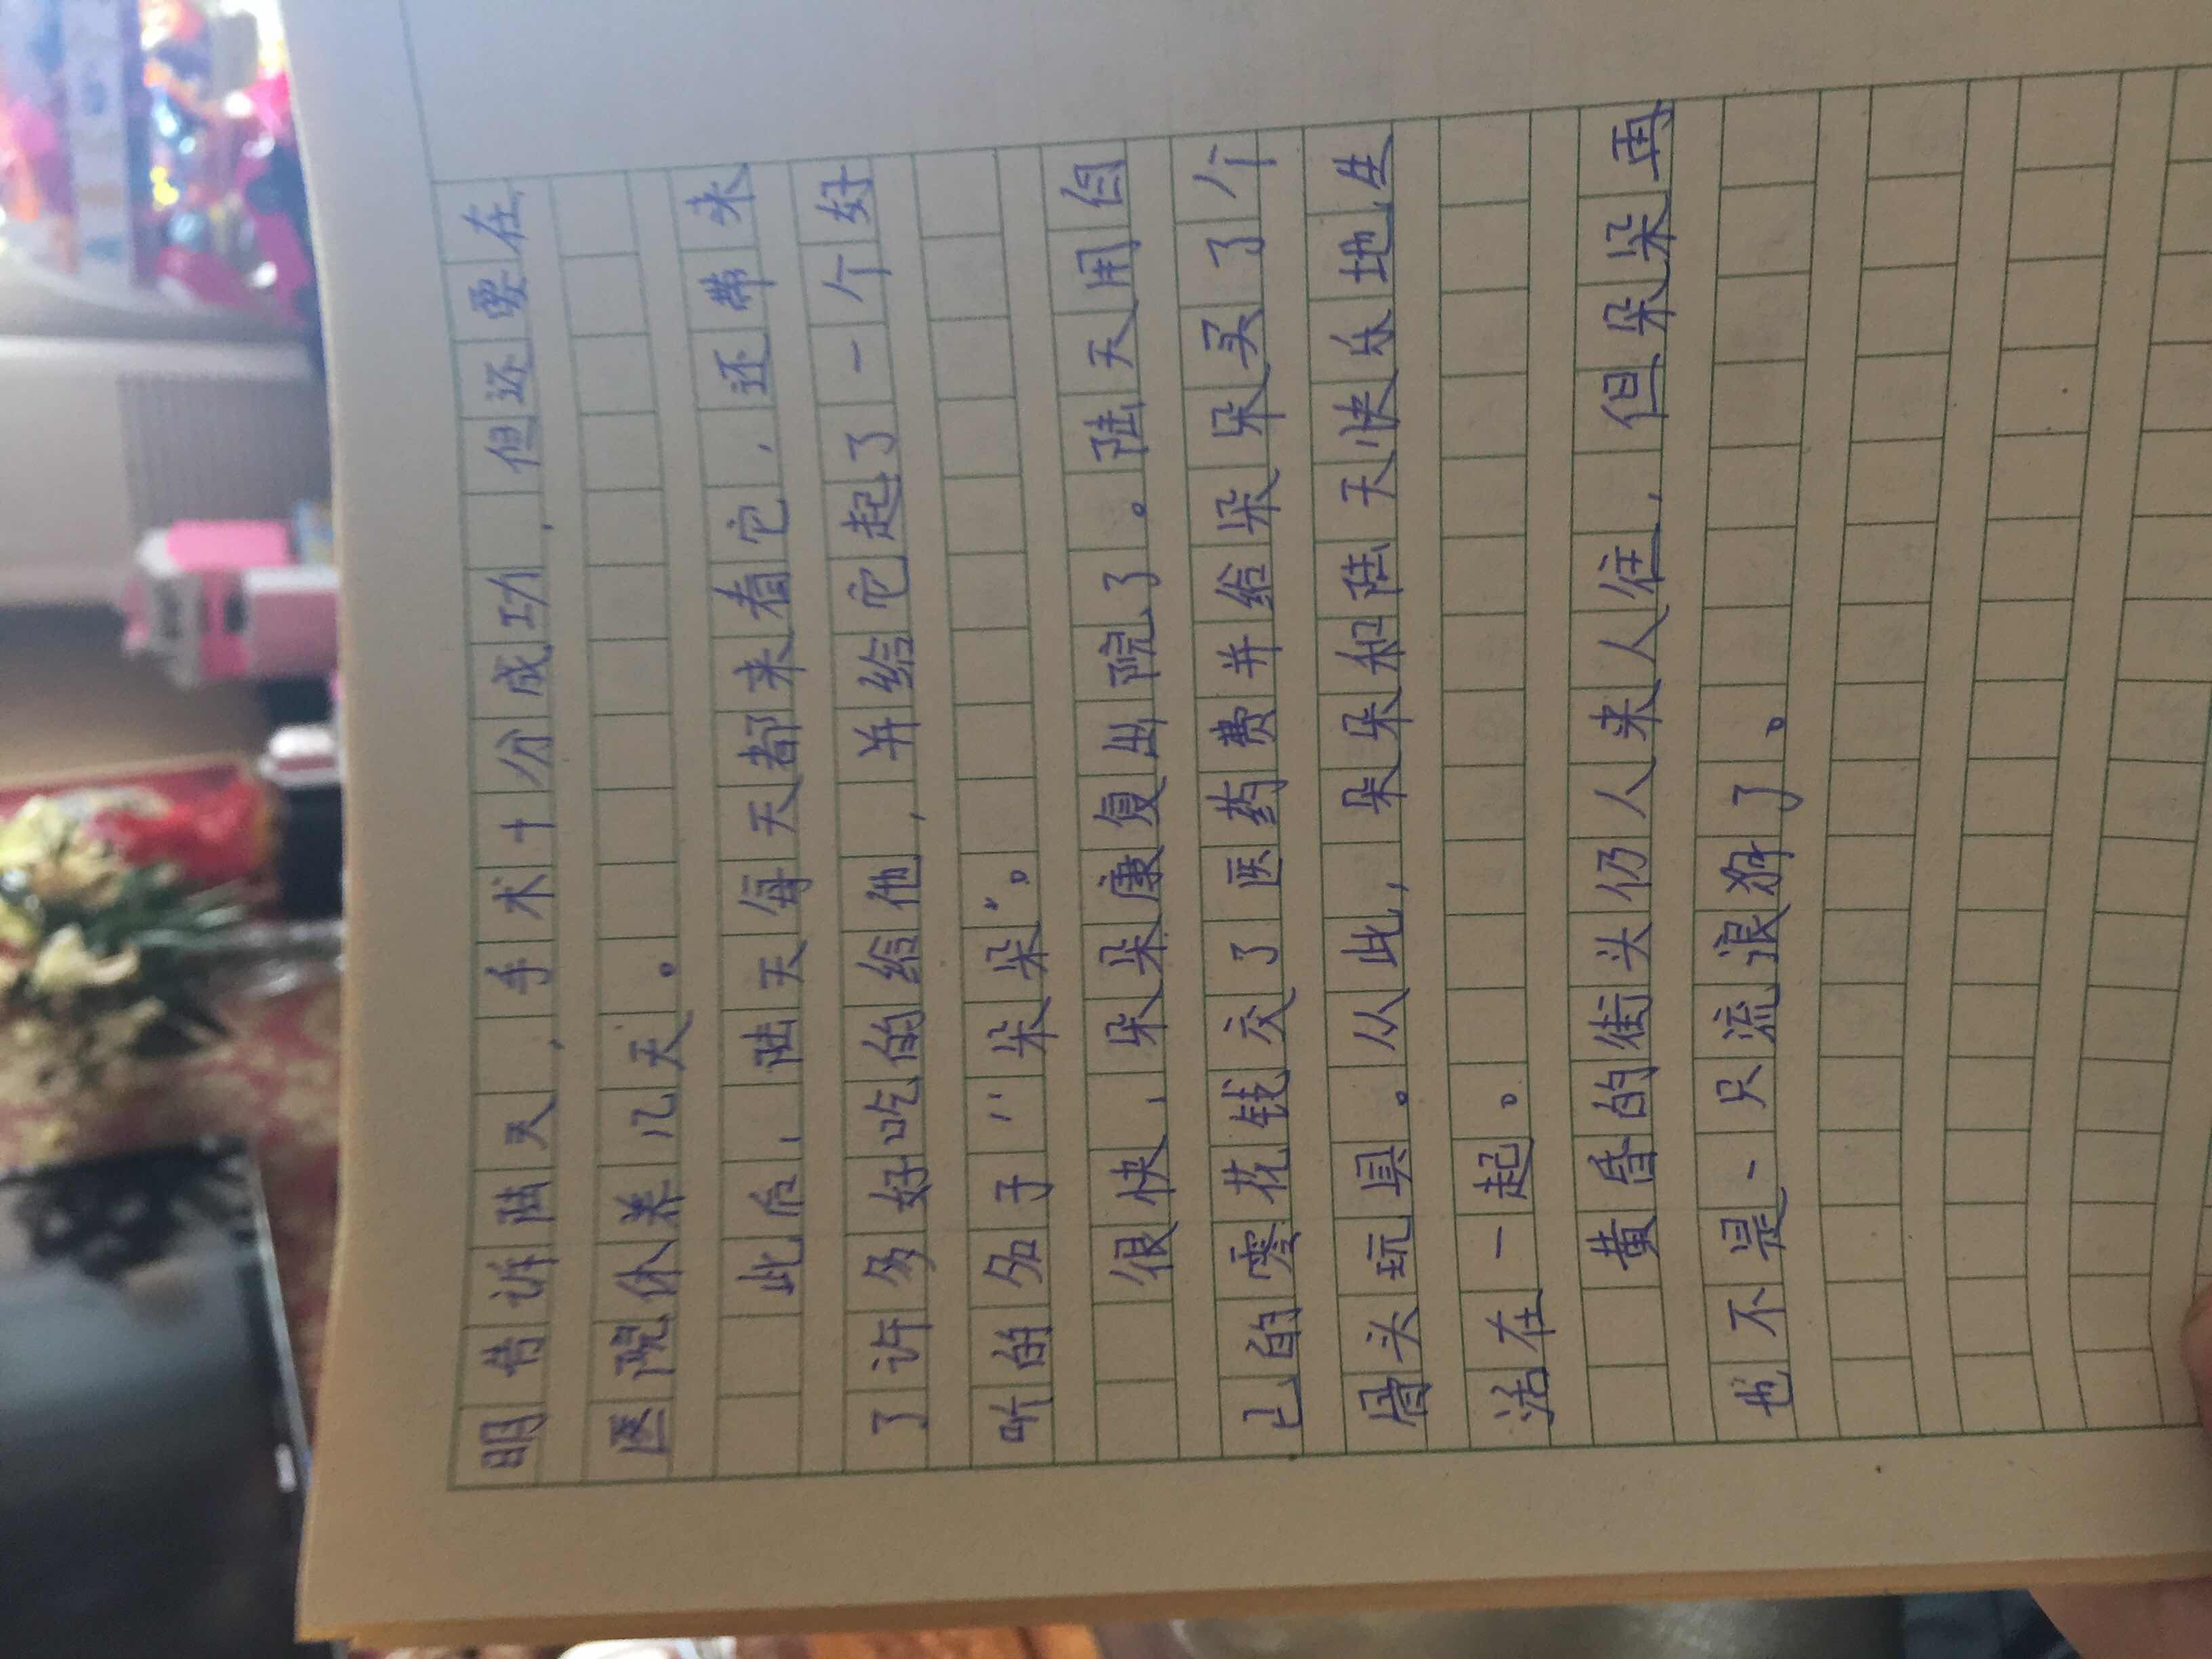 明告诉陆天，手术十分成功，但还要在
医院休养几天。
此后，陆天每天都来看它，还带来
了许多好吃的给他，并给它起了一个好
听的名子“朵朵”。
很快，朵朵康复出院了。陆天用自
己的零花钱交了医药费并给朵朵买了个
骨头玩具。从此，朵朵和陆天快乐地生
活在一起。
黄昏的街头仍人来人往，但朵朵再
也不是一只流浪狗了。